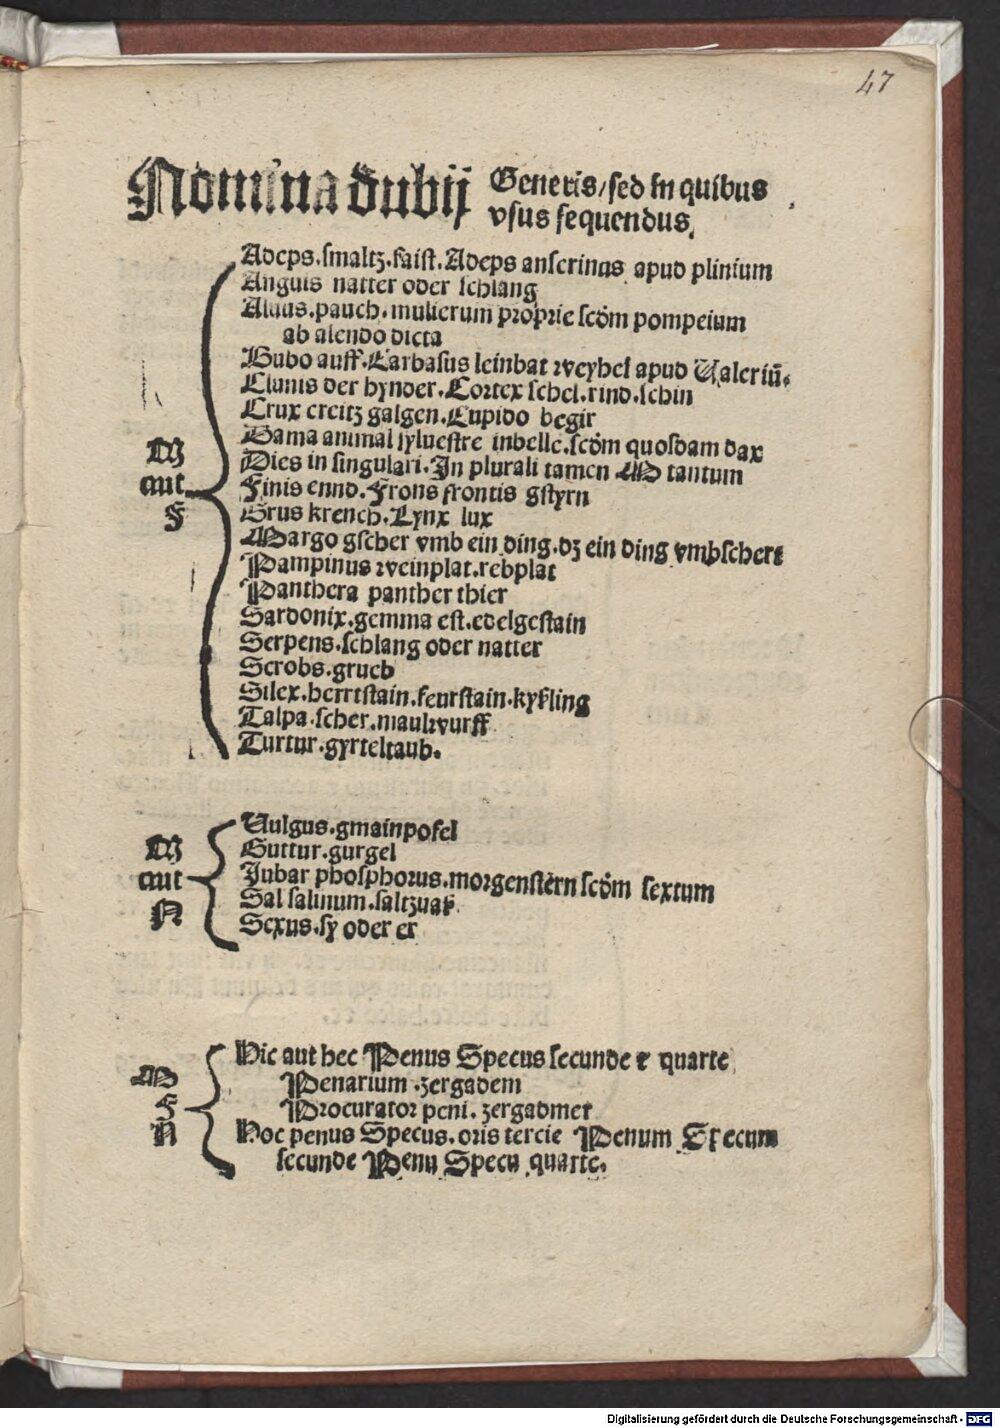 47
Nomina dubij Generis/sed in quibus
vsus sequendus.
Adeps.smaltz.faist.Adeps anserinus apud plinium
Anguis natter oder schlang
Aluus.pauch.mulierum proprie scðm pompeium
ab alendo dicta
Bubo auff.Carbasus leinbat weyhel apud Valeriū.
Clunis der hynder.Cortex schel.rind.schin
Crux creitz galgen.Cupido begir
Dama animal syluestre inbelle.scðm quosdam dax
Dies in singulari.In plurali tamen M tantum
Finis ennd.Frons frontis gstyrn
Grus krench.Lynx lux
Margo gscher vmb ein ding.dz ein ding vmbschert
Pampinus weinplat.rebplat
Panthera panther thier
Sardonix.gemma est.edelgestain
Serpens.schlang oder natter
Scrobs.grueb
Silex.herrtstain.feurstain.kyßling
Talpa.scher.maulwurff
Turtur.gyrteltaub.
M
aut
F
Vulgus.gmainpofel
Guttur.gurgel
Jubar phosphorus.morgenstern scðm sextum
Sal salinum.saltzuaß
Sexus.sy oder er
M
aut
N
Hic aut hec Penus Specus secunde ⁊ quarte
Penarium.zergadem
Procurator peni.zergadmer
Hoc penus Specus.oris tercie Penum Specum
secunde Penu Specu quarte.
M
F
N
Digitalisierung gefördert durch die Deutsche Forschungsgemeinschaft - DFG